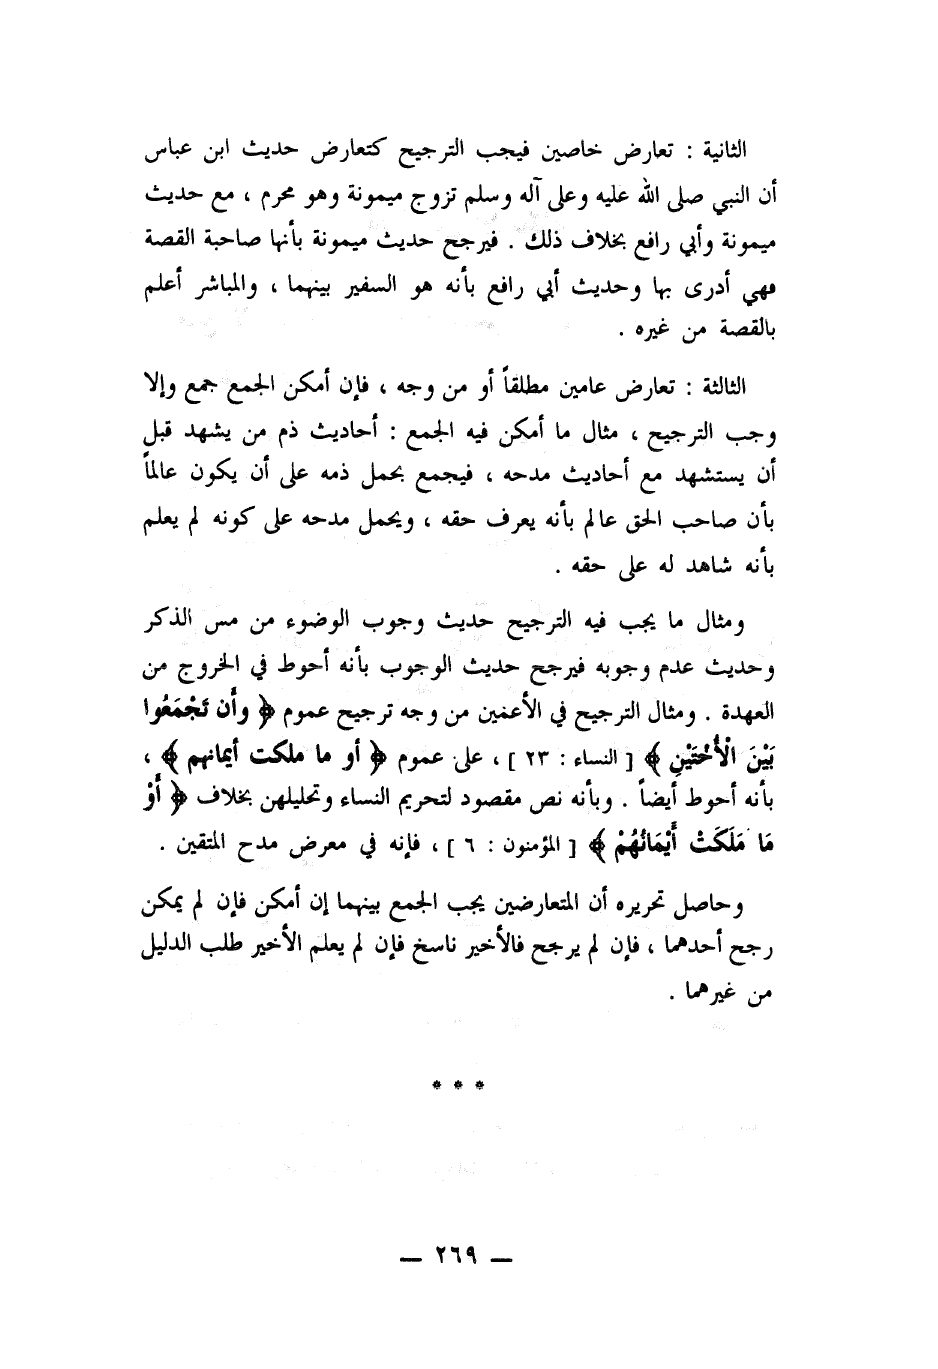 الثانية : تعارض خاصين فيجب الترجيح كتعارض حديث ابن عباس
أن النبي صلى الله عليه وعلى آله وسلم تزوج ميمونة وهو محرم ، مع حديث
ميمونة وأبي رافع بخلاف ذلك . فيرجح حديث ميمونة بأنها صاحبة القصة
فهي أدرى بها وحديث أبي رافع بأنه هو السفير بينهما ، والمباشر أعلم
بالقصة من غيره .
الثالثة : تعارض عامين مطلقاً أو من وجه ، فإن أمكن الجمع جمع وإلا
وجب الترجيح ، مثال ما أمكن فيه الجمع : أحاديث ذم من يشهد قبل
أن يستشهد مع أحاديث مدحه ، فيجمع بحمل ذمه على أن يكون عالماً
بأن صاحب الحق عالم بأنه يعرف حقه ، ويحمل مدحه على كونه لم يعلم
بأنه شاهد له على حقه .
ومثال ما يجب فيه الترجيح حديث وجوب الوضوء من مس الذكر
وحديث عدم وجوبه فيرجح حديث الوجوب بأنه أحوط في الخروج من
العهدة . ومثال الترجيح في الأعمين من وجه ترجيح عموم ﴿ وأَن تَجْمَعُوا
بَيْنَ الْأُخْتَيْنِ ﴾ [ النساء : ٢٣ ] ، على عموم ﴿ أو ما ملكت أيمانهم ﴾ ،
بأنه أحوط أيضاً . وبأنه نص مقصود لتحريم النساء وتحليلهن بخلاف ﴿ أَوْ
مَا مَلَكَتْ أَيْمَانُهُمْ ﴾ [ المؤمنون : ٦ ] ، فإنه في معرض مدح المتقين .
وحاصل تحريره أن المتعارضين يجب الجمع بينهما إن أمكن فإن لم يمكن
رجح أحدهما ، فإن لم يرجح فالأخير ناسخ فإن لم يعلم الأخير طلب الدليل
من غيرهما .
* * *
— ٢٦٩ —